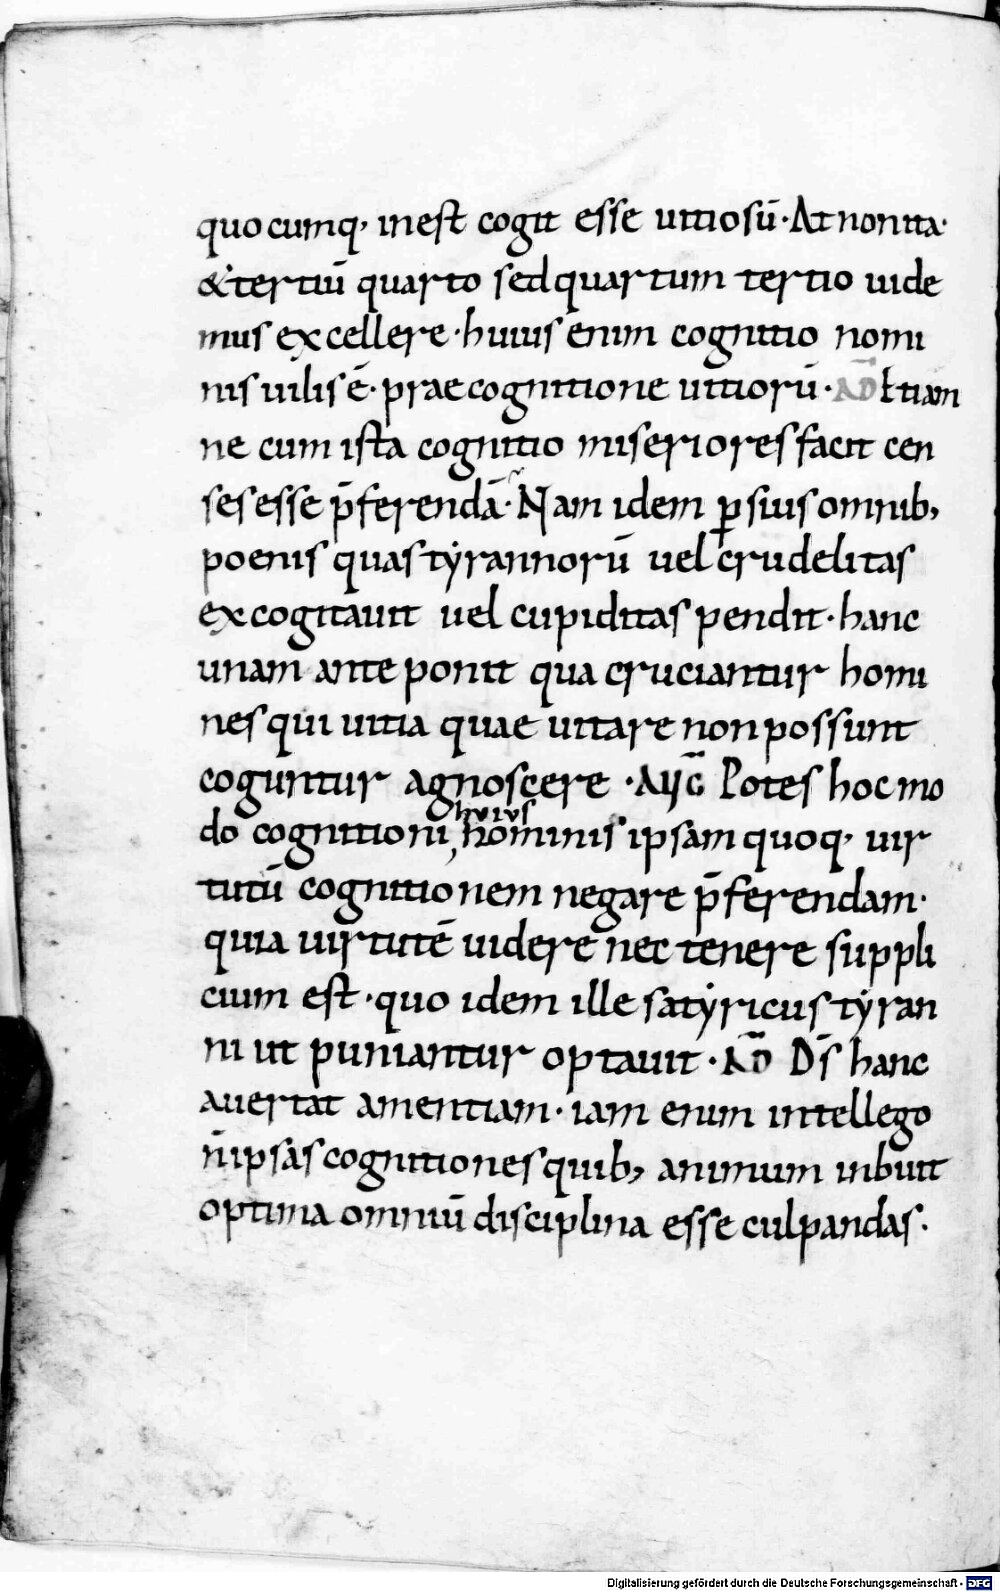 quocumq· inest cogit esse uitiosū· At non ita·
& tertiū quarto sed quartum tertio uide
mus excellere· huius enim cognitio nomi
nis uilis ē· prae cognitione uitiorū· AD̄ Etiam
ne cum ista cognitio miseriores facit cen
ses esse p̄ferendā· Nam idem ꝑsius omnib;
poenis quas tyrannorū uel crudelitas
excogitauit uel cupiditas pendit· hanc
unam anteponit qua cruciantur homi
nes qui uitia quae uitare non possunt
coguntur agnoscere· AŪG Potes hoc mo
huius
do cognitioni, nominis ipsam quoq· uir
tutū cognitionem negare p̄ferendam·
quia uirtutē uidere nec tenere suppli
cium est· quo idem ille satyricus tyran
ni ut puniantur optauit· AD̄ Ds̄ hanc
auertat amentiam· iam enim intellego
n̄ ipsas cognitiones quib; animum inbuit
optima omniū disciplina esse culpandas·
Digitalisierung gefördert durch die Deutsche Forschungsgemeinschaft - DFG